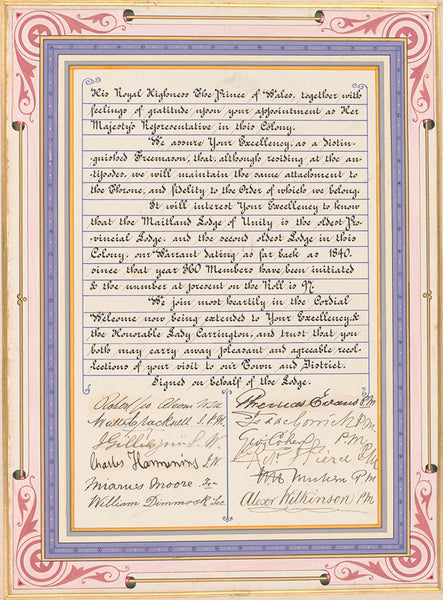 His Royal Highness The Prince of Wales, together with
feelings of gratitude upon your appointment as Her
Majesty's Representative in this Colony.
We assure Your Excellency, as a distin-
guished Freemason, that, although residing at the an-
tipodes, we will maintain the same attachment to
the Throne, and fidelity to the Order of which we belong.
It will interest Your Excellency to know
that the Maitland Lodge of Unity is the oldest Pro-
vincial Lodge, and the second oldest Lodge in this
Colony, our Warrant dating as far back as 1840.
since that year 360 Members have been initiated
& the number at present on the Roll is 97.
We join most heartily in the Cordial
Welcome now being extended to Your Excellency, &
the Honorable Lady Carrington, and trust that you
both may carry away pleasant and agreeable recol-
lections of your visit to our Town and District.
Signed on behalf of the Lodge.
Thomas Evans P.M.
P.M.
Geo. Coker P.M.
Charles J.W.
Pierce P.M.
Miarnes Moore
P.M.
William Dimmock Sec
Alexr Wilkinson P.M.